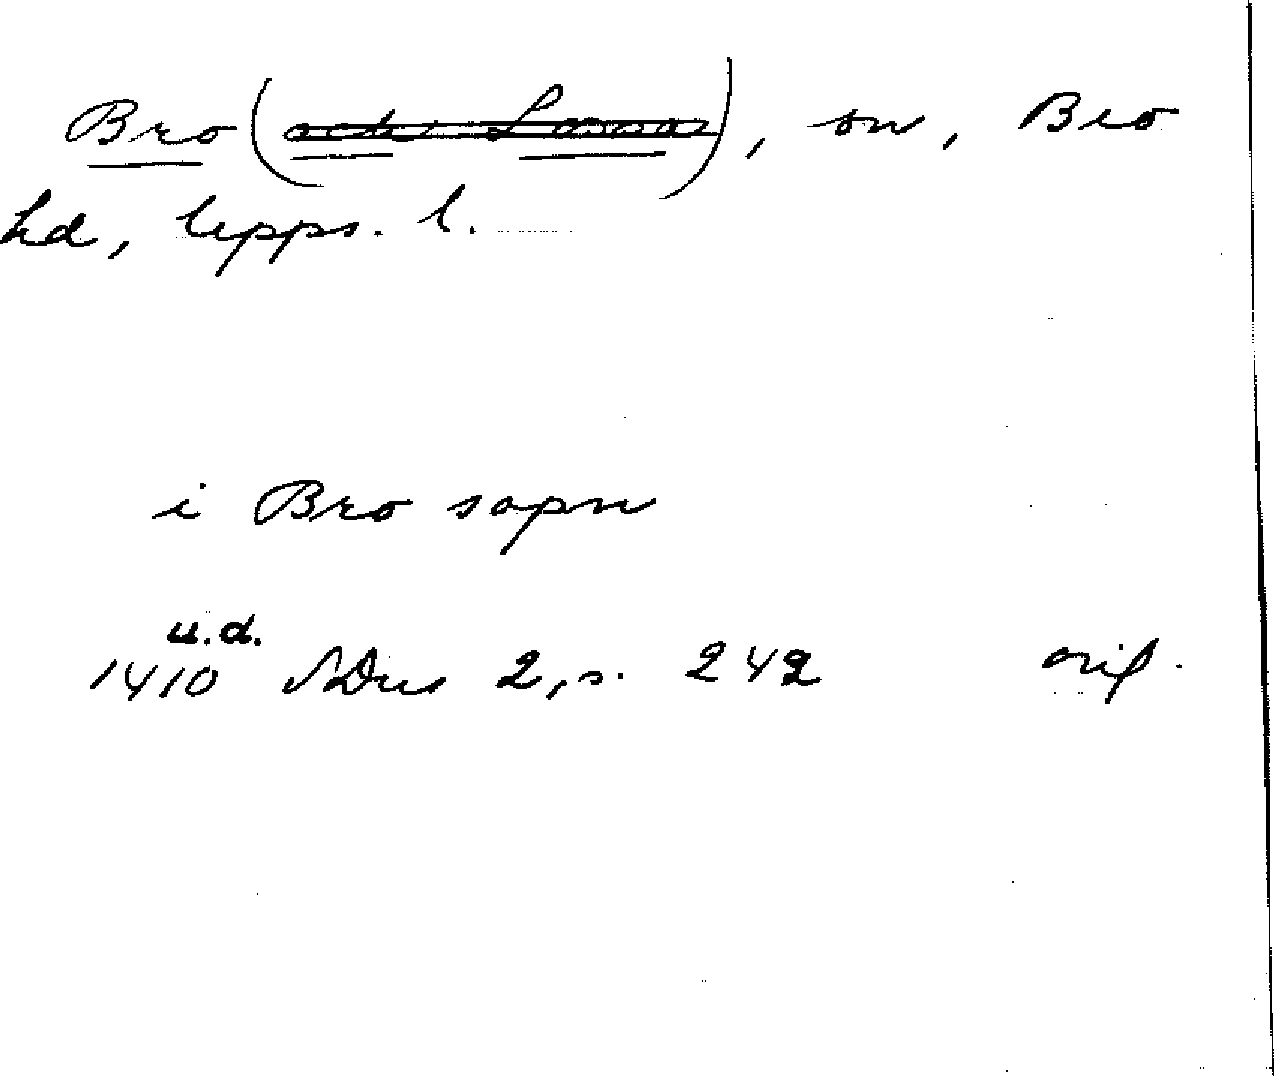 Bro (och Lossa), sn, Bro
hd, Upps. l.
i Bro sopn
u.d.
1410 SDns 2, s. 242 orig.